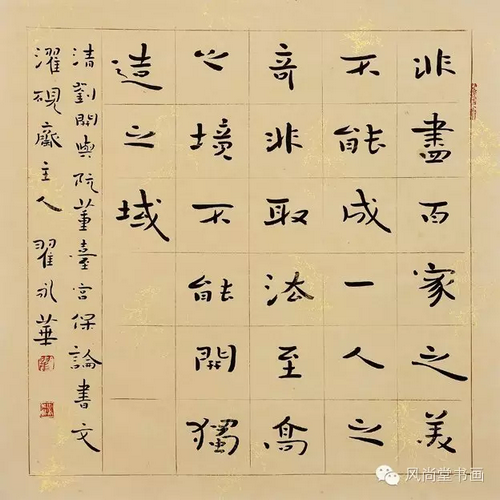 非盡百家之美
不能成一人之
奇非取法至高
之境不能開獨
造之域
清劉開與阮董臺宮保論書文
濯硯齋主人翟永華
风尚堂书画